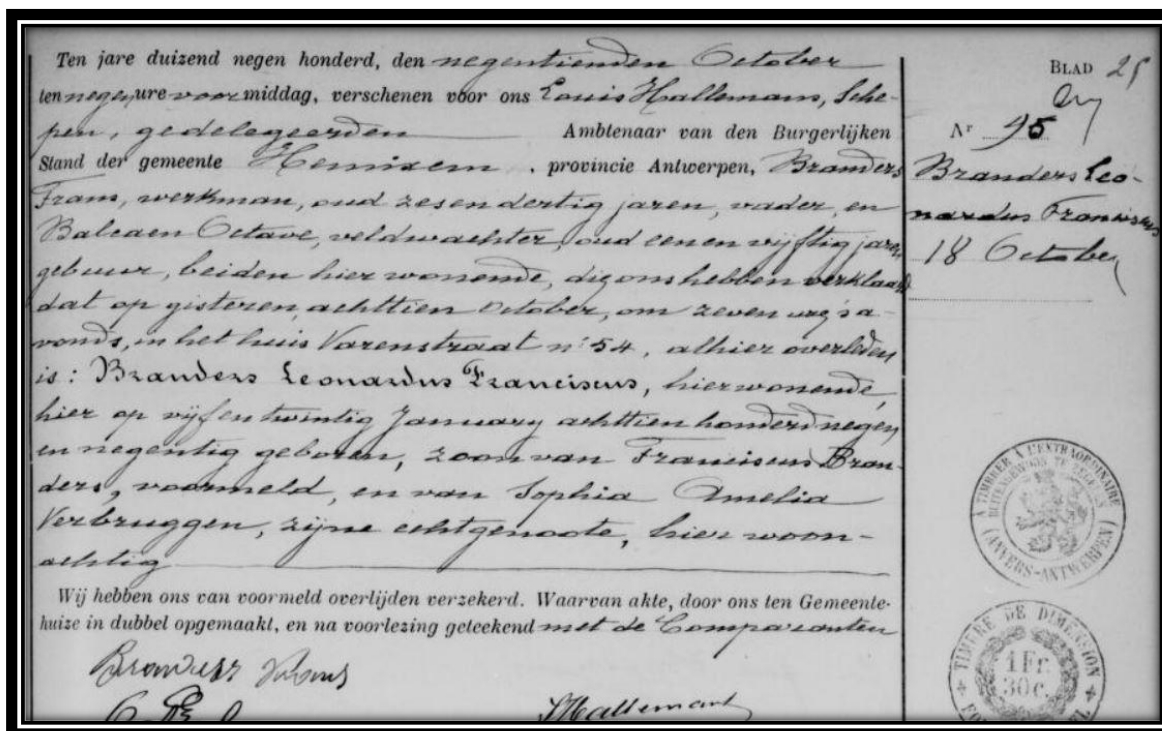 Ten jare duizend negen honderd, den negentienden October
ten negen ure voormiddag, verschenen voor ons Louis Hallemans, Sche-
pen, gedelegeerden Ambtenaar van den Burgerlijken
Stand der gemeente Hemixem, provincie Antwerpen, Branders
Frans, werkman, oud zes en dertig jaren, vader, en
Balcaen Octave, veldwachter, oud een en vijftig jaren,
gebuur, beiden hier wonende, die ons hebben verklaard
dat op gisteren, achttien October, om zeven ure 's a-
vonds, in het huis Varenstraat nr 54, alhier overleden
is: Branders Leonardus Franciscus, hier wonende,
hier op vijf en twintig January achttien honderd negen
en negentig geboren, zoon van Franciscus Bran-
ders, voormeld, en van Sophia Amelia
Verbruggen, zijne echtgenoote, hier woon-
achtig
Wij hebben ons van voormeld overlijden verzekerd. Waarvan akte, door ons ten Gemeente-
huize in dubbel opgemaakt, en na voorlezing geteekend met de Comparanten
Branders
LHallemans
BLAD 25
Nr 95
Branders Leo-
nardus Franciscus
18 October
A TIMBRER À L'EXTRAORDINAIRE
BUITENGEWOON TE ZEGELEN
(ANVERS-ANTWERPEN)
TIMBRE DE DIMENSION
1 Fr.
30 c.